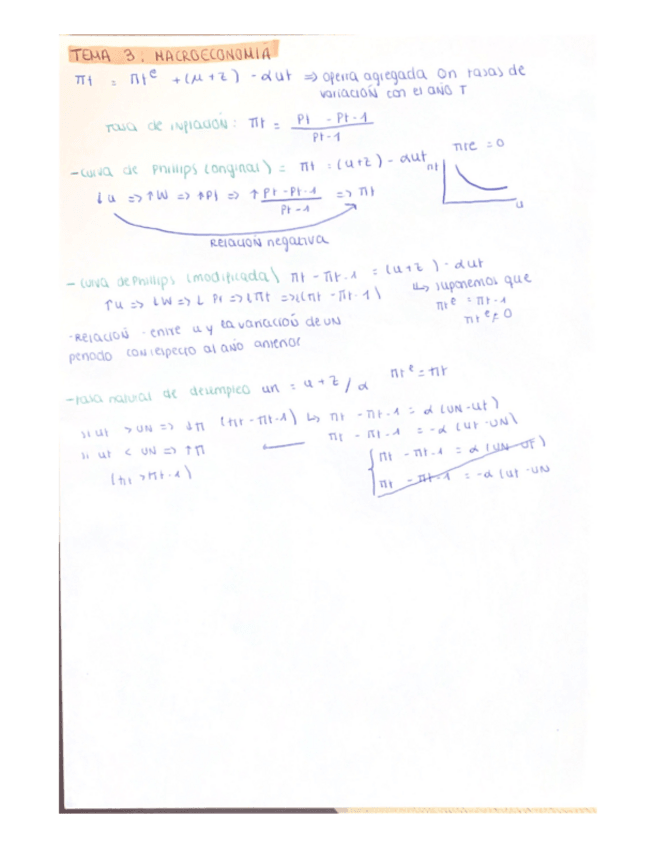 TEMA 3: MACROECONOMIA
πt = πt^e + (μ+z) - αut => oferta agregada en tasas de
variación con el año T
Tasa de inflación: πt = (Pt - Pt-1) / (Pt-1)
- curva de Phillips (original) = πt = (μ+z) - αut   πte = 0
↓u => ↑W => ↑Pt => ↑ (Pt - Pt-1) / (Pt-1) => πt
πt
u
Relación negativa
- curva de Phillips (modificada) πt - πt-1 = (μ+z) - αut
↑u => ↓W => ↓Pt => ↓πt => ↓(πt - πt-1)   ↳ suponemos que
πt^e = πt-1
πt^e ≠ 0
- Relación entre u y la variación de un
periodo con respecto al año anterior
- tasa natural de desempleo un = μ+z/α   πt^e = πt
si ut > UN => ↓π (πt - πt-1) ↳ πt - πt-1 = α(UN - ut)
si ut < UN => ↑π   πt - πt-1 = -α(ut - UN)
(πt > πt-1)
πt - πt-1 = α(UN - UT)
πt - πt-1 = -α(ut - UN